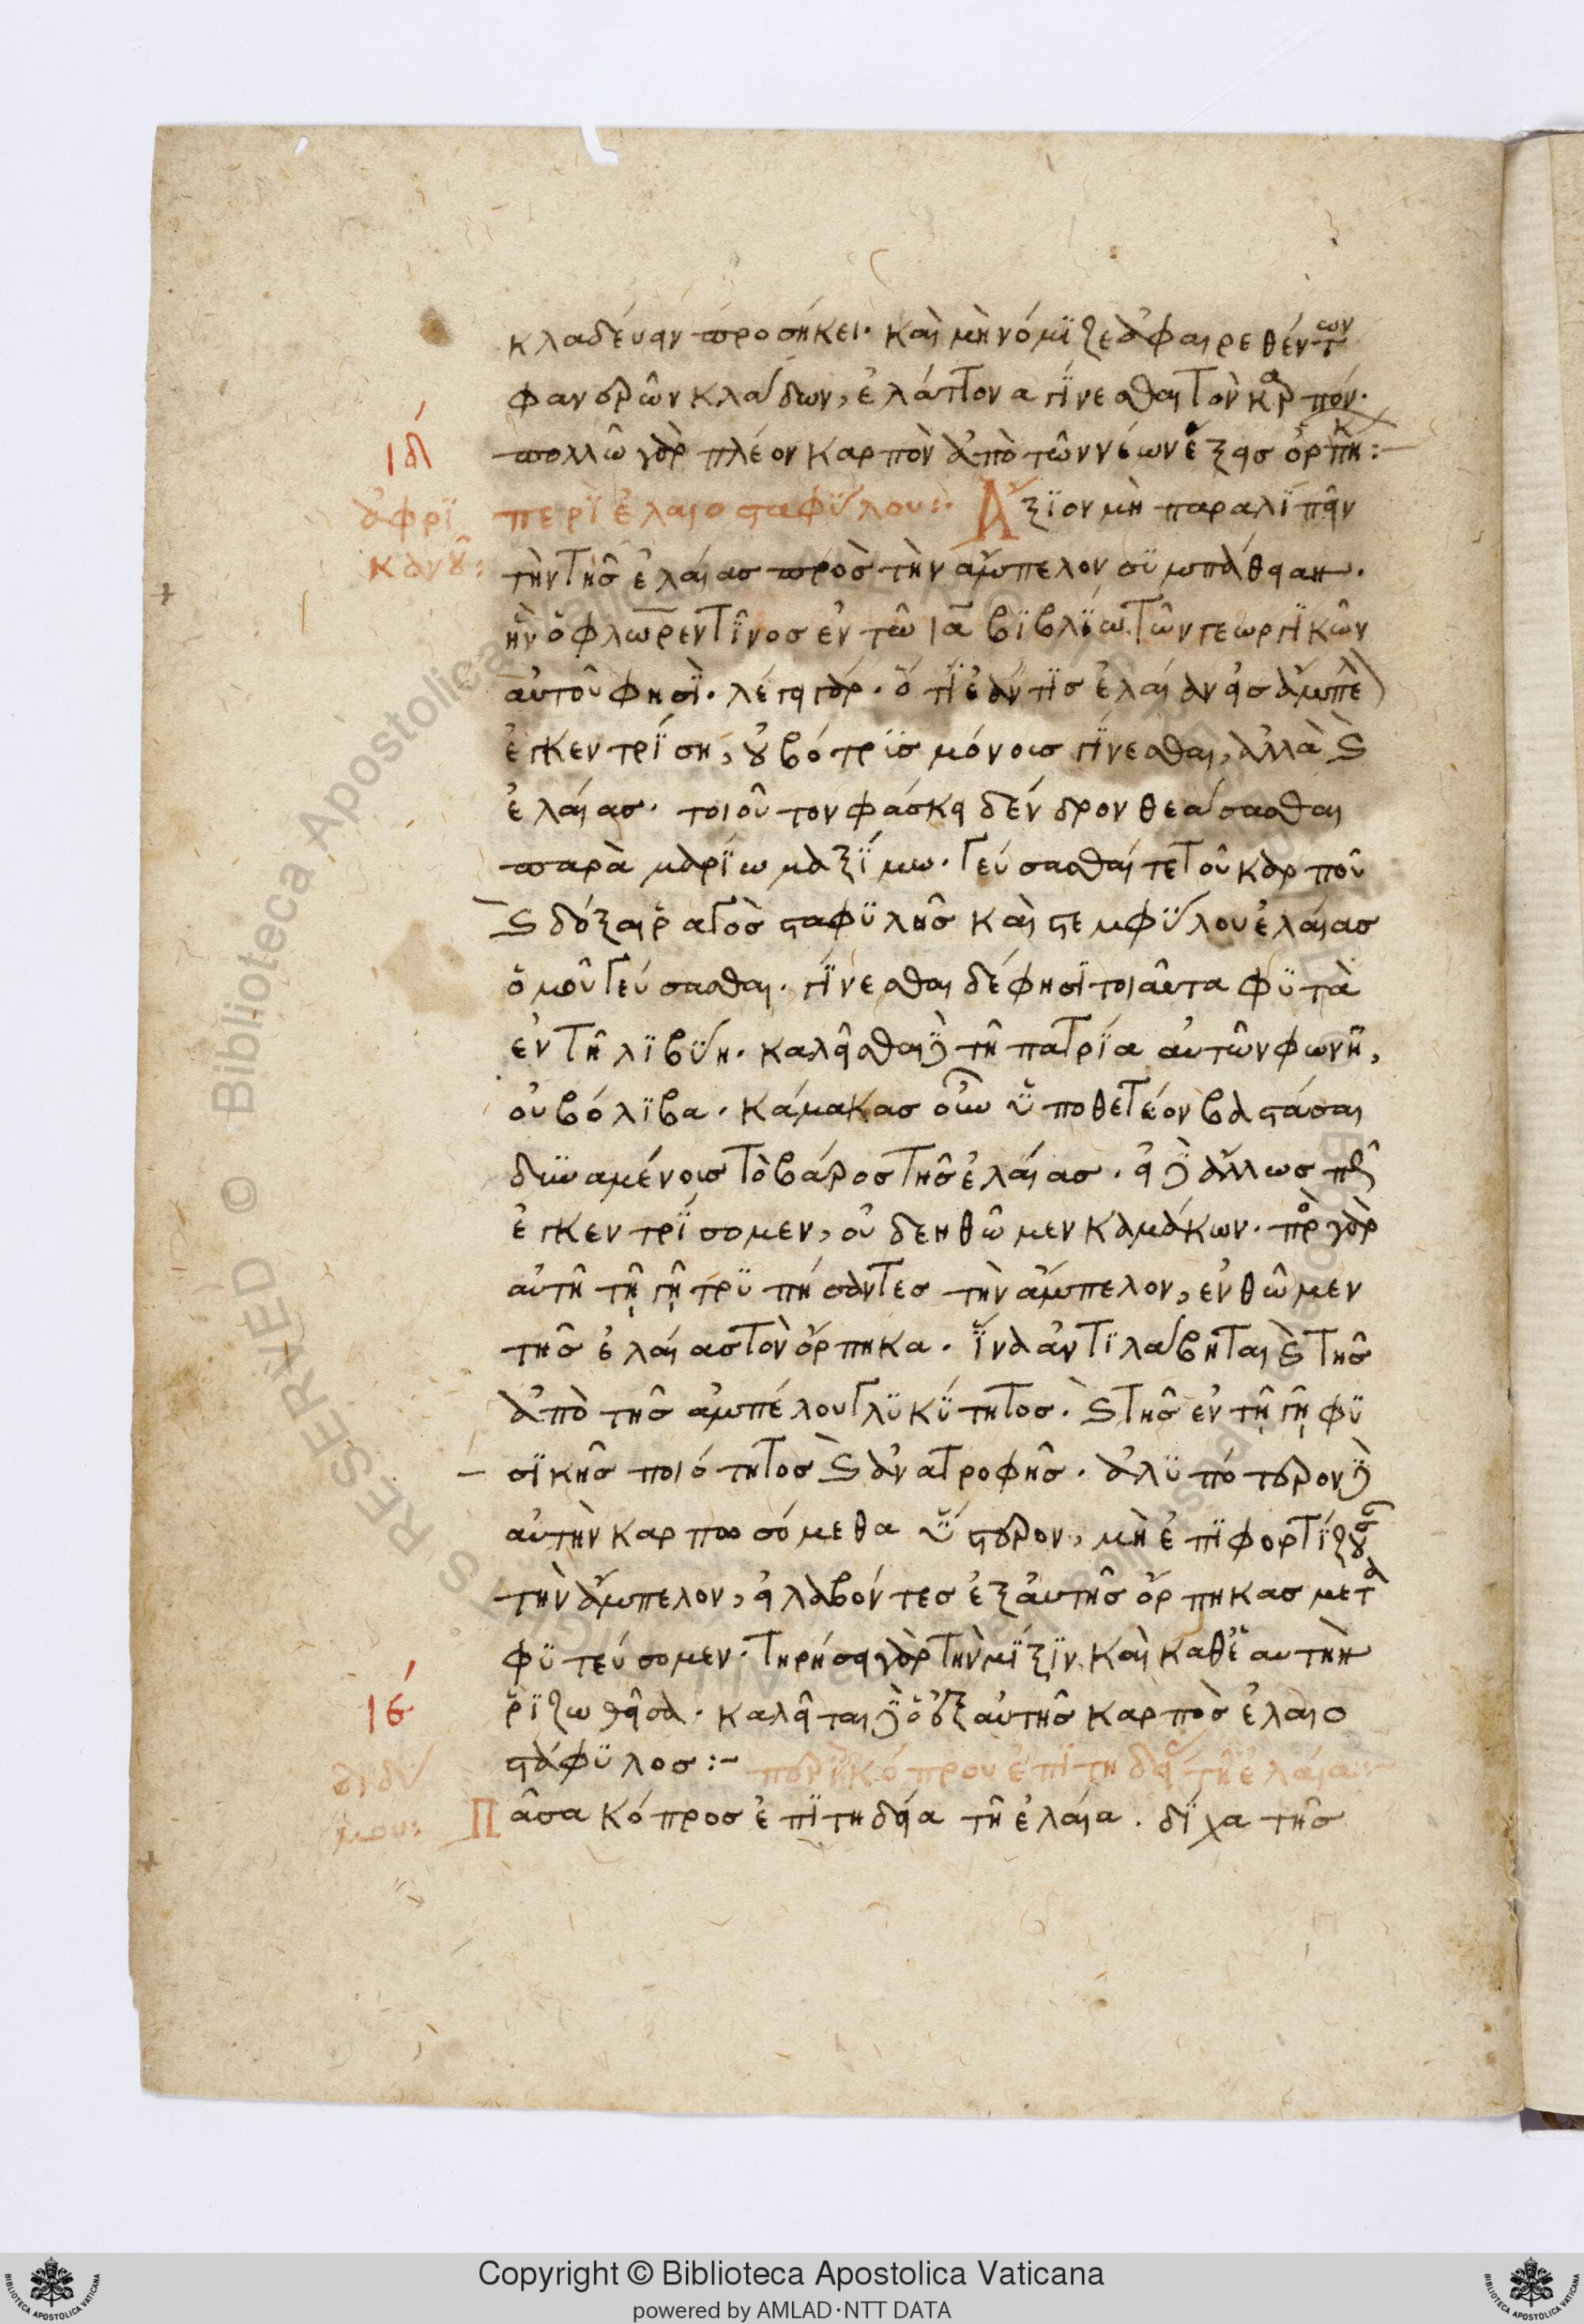 κλαδεύειν προσήκει· καὶ μὴ νόμϊζε ἀφαιρεθέντων
φανερῶν κλάδων, ἐλάττονα γΐνεσθαι τὸν καρπόν·
ιδ πολλῶ γὰρ πλέον καρπὸν ἀπὸ τῶν νέων ἕξεις ὀρπήκ:
ἀφρϊ περὶ ἐλαιοσταφΰλου:· Ἄξϊον μὴ παραλϊπεῖν
κανοῦ: τὴν τῆς ἐλαίας πρὸς τὴν ἄμπελον συμπάθειαν·
ἣν ὁ φλωρεντῖνος ἐν τῶ ια βϊβλΐω τῶν γεωργϊκῶν
αὐτοῦ φησϊ· λέγει γάρ· ὅτϊ ἐάν τϊς ἐλαίαν εἰς ἄμπελ
ἐγκεντρΐση, οὐ βότρϋς μόνοις γΐνεσθαι, ἀλλὰ καὶ
ἐλαίας· τοιοῦτον φάσκει δένδρον θεάσασθαι
παρὰ μαρΐω μαξΐμω· γεύσασθαί τε τοῦ καρποῦ
καὶ δόξαι ῥαγὸς σταφϋλῆς καὶ στεμφΰλου ἐλαίας
ὁμοῦ γεύσασθαι· γΐνεσθαι δέ φησϊ τοιαῦτα φϋτὰ
ἐν τῆ λϊβΰη· καλεῖσθαι δὲ τῆ πατρΐα αὐτῶν φωνῆ,
οὐβόλϊβα· κάμακας οὖν ὑποθετέον βαστάσαι
δϋναμένοις τὸ βάρος τῆς ἐλαίας· εἰ δὲ ἄλλως πως
ἐγκεντρΐσομεν, οὐ δεηθῶμεν καμάκων· πρὸς γὰρ
αὐτῆ τῇ γῇ τρϋπήσαντες τὴν ἄμπελον, ἐνθῶμεν
τῆς ἐλαίας τὸν ὄρπηκα· ἵνα ἀντϊλάβηται καὶ τῆς
ἀπὸ τῆς ἀμπέλου γλϋκΰτητος· καὶ τῆς ἐν τῇ γῇ φϋ
σϊκῆς ποιότητος καὶ ἀνατροφῆς· ἀλϋπότερον δὲ
αὐτὴν καρπωσόμεθα ὕστερον, μὴ ἐπϊφορτΐζουσαν
τὴν ἄμπελον, εἰ λαβόντες ἐξ αὐτῆς ὄρπηκας μετα
φϋτεύσομεν· τηρήσει γὰρ τὴν μΐξϊν καὶ καθ' ἑαυτὴν
ιε ῥϊζωθεῖσα· καλεῖται δὲ ὁ ἐξ αὐτῆς καρπὸς ἐλαιο
στάφϋλος:- περὶ κόπρου ἐπϊτηδείου τῆ ἐλαία:-
διδΰ
μου: Πᾶσα κόπρος ἐπϊτηδεία τῆ ἐλαία· δΐχα τῆς
Copyright © Biblioteca Apostolica Vaticana
powered by AMLAD·NTT DATA